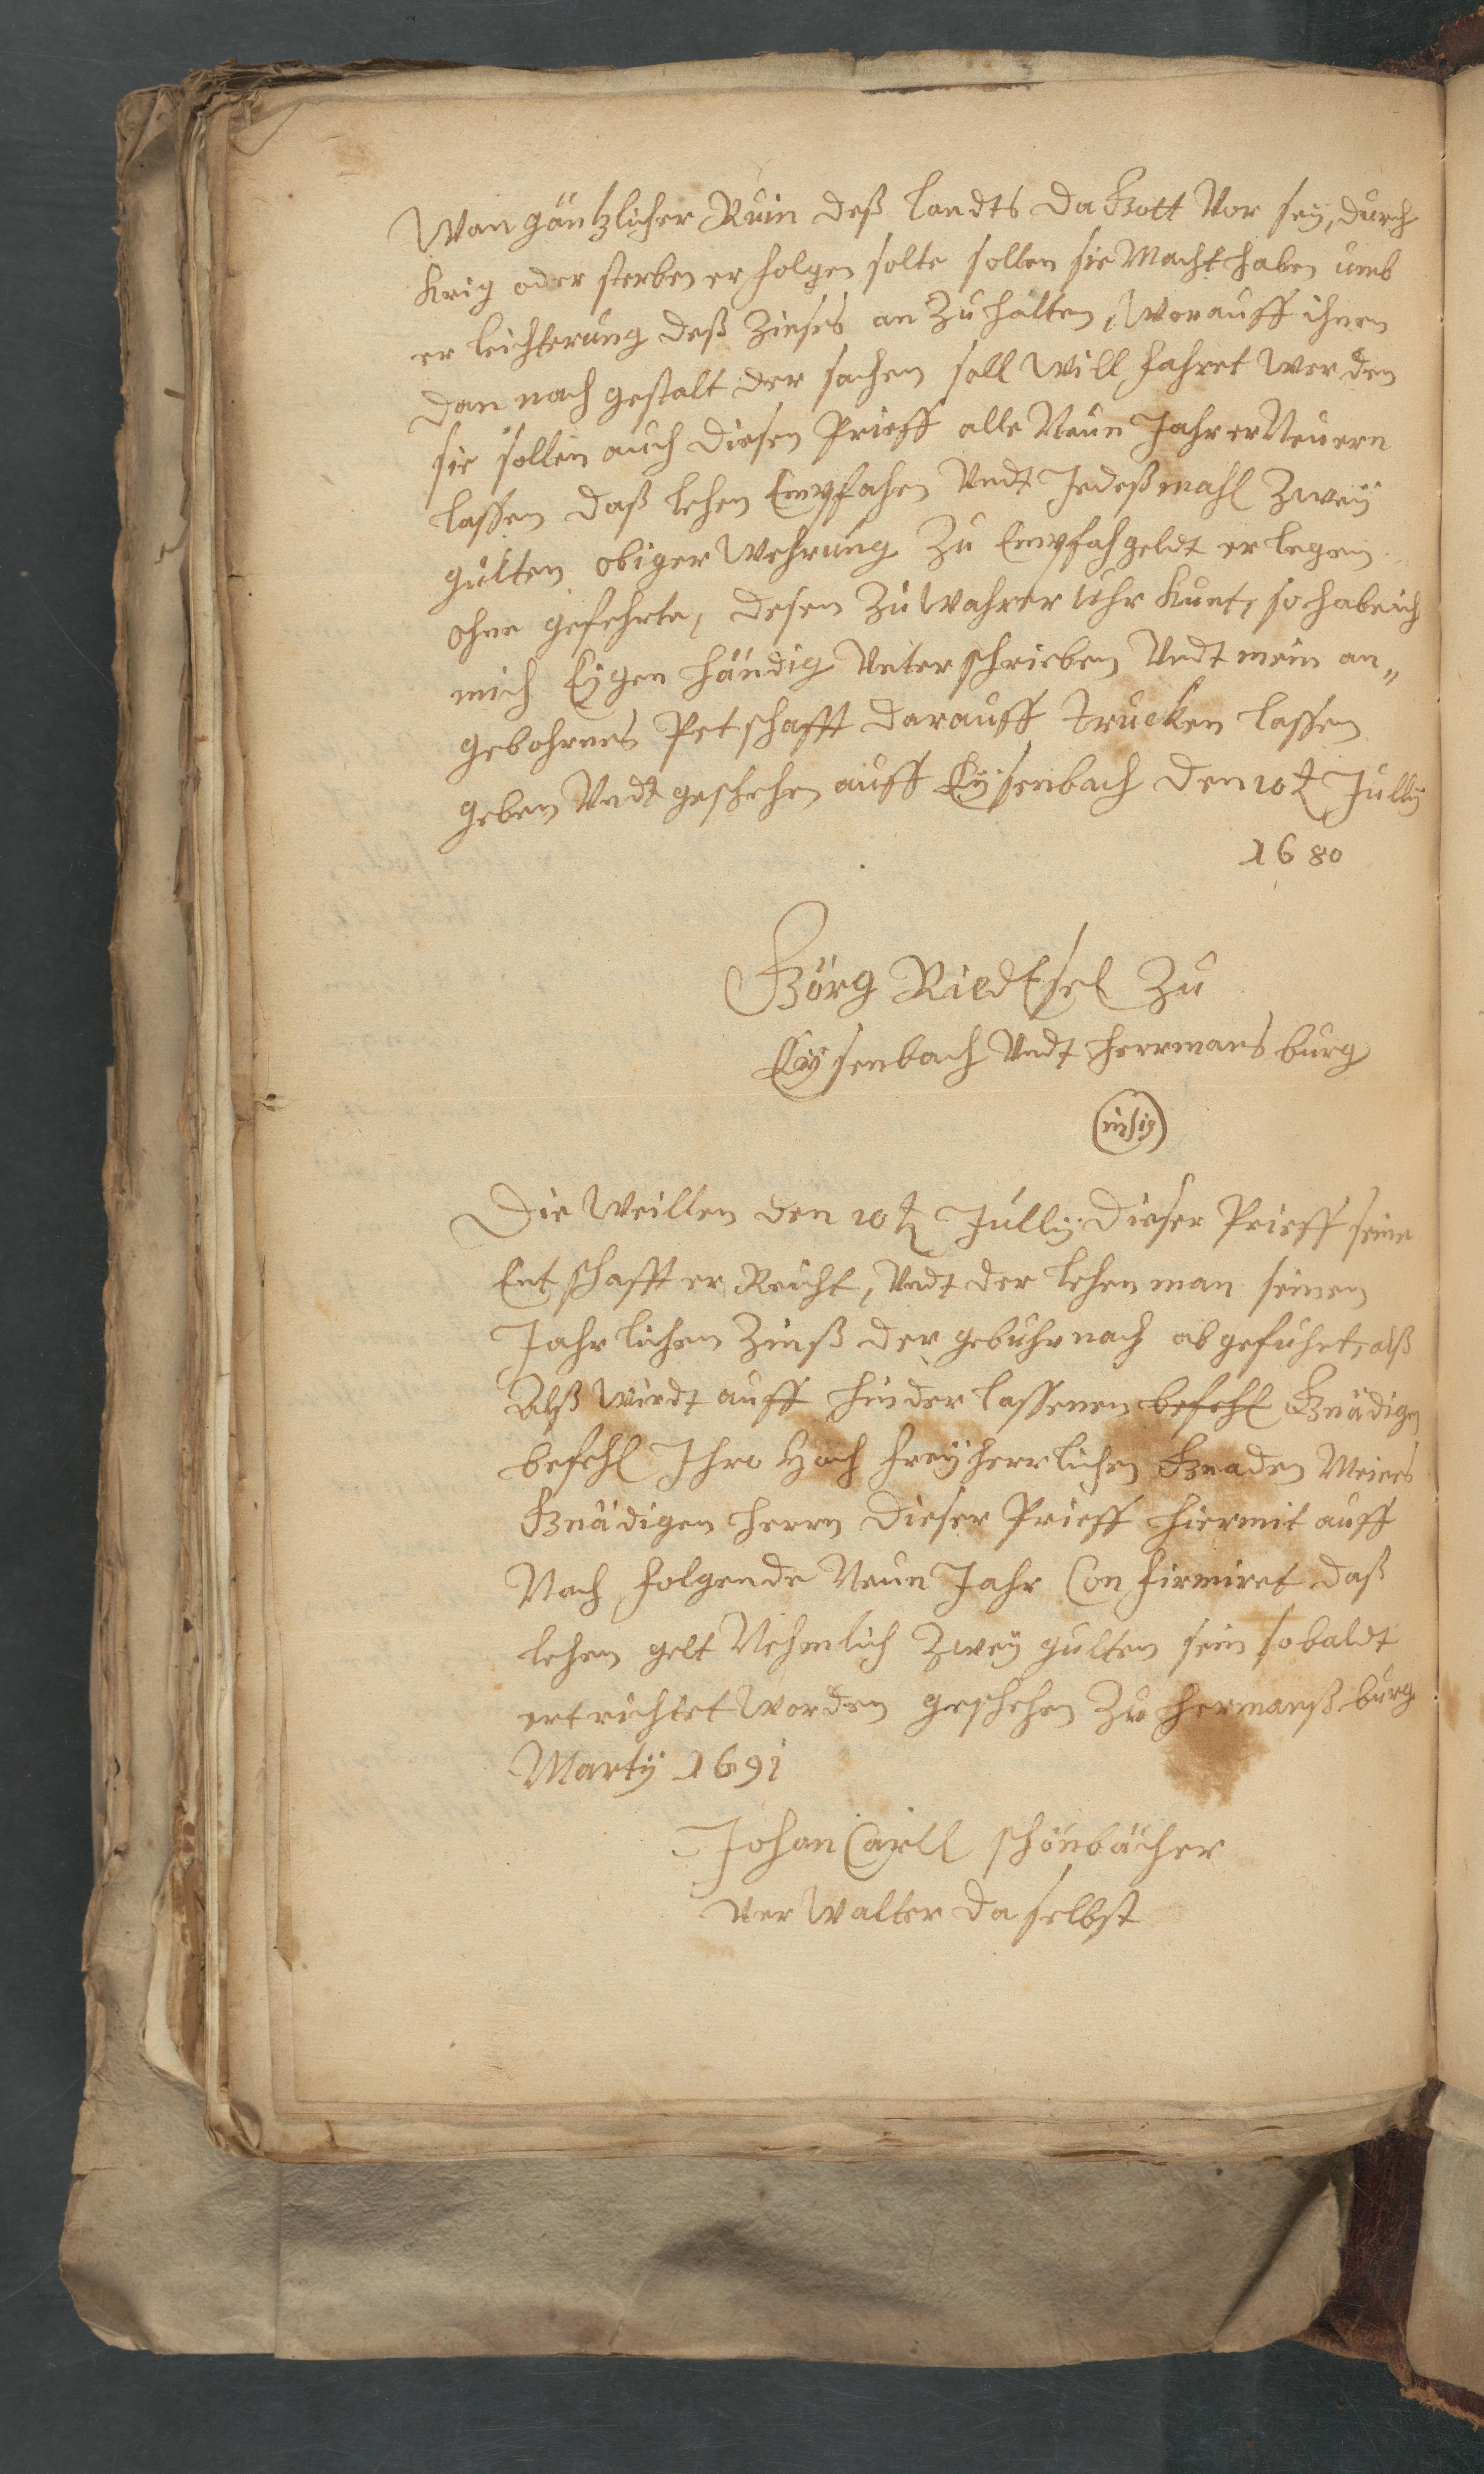 Wan gäntzlicher Ruin deß landts da Gott Vor sey, durch
Krig oder sterben er folgen solte sollen sie Macht haben umb
er leichterung deß Zinses an Zu halten, Worauff ihnen
dan nach gestalt der sachen soll Will fahret Werden
sie sollen auch diesen Prieff alle Neun Jahr er Neuern
lassen daß lehen Empfahen Undt Jedeßmahl Zweÿ
gulten obiger Wehrung Zu Empfah geldt er legen
ohne gefehrte, desen Zu Wahrer Uhr Kunt, so habe ich
mich Eÿgen händig Unter schrieben Undt mein an„
gebohrnes Petschafft darauff trucken lassen
geben Undt geschehen auff Eÿsenbach den 10t Jullÿ
1680
Görg RiedEsel Zu
Eÿsenbach Undt herrmans burg
insig
Die Weillen den 10t Jullÿ dieser Prieff seine
Entschafft er Reicht, Undt der lehen man seinen
Jahrlichen Zinß der gebuhr nach ab gefuhrt, alß
Alß Wirdt auff hinder lassenen befehl Gnädigen
befehl Ihro Hoch freÿherrlichen Gnaden Meines
Gnädigen herrn dieser Prieff hiermit auff
Nach folgende Neun Jahr Confirmiret daß
lehen gelt Nehmlich Zweÿ gulten sein sobaldt
ertrichtet Worden geschehen Zu hermanß burg
Martÿ 1691
Johan Carll schönbächer
Ver Walter da selbst